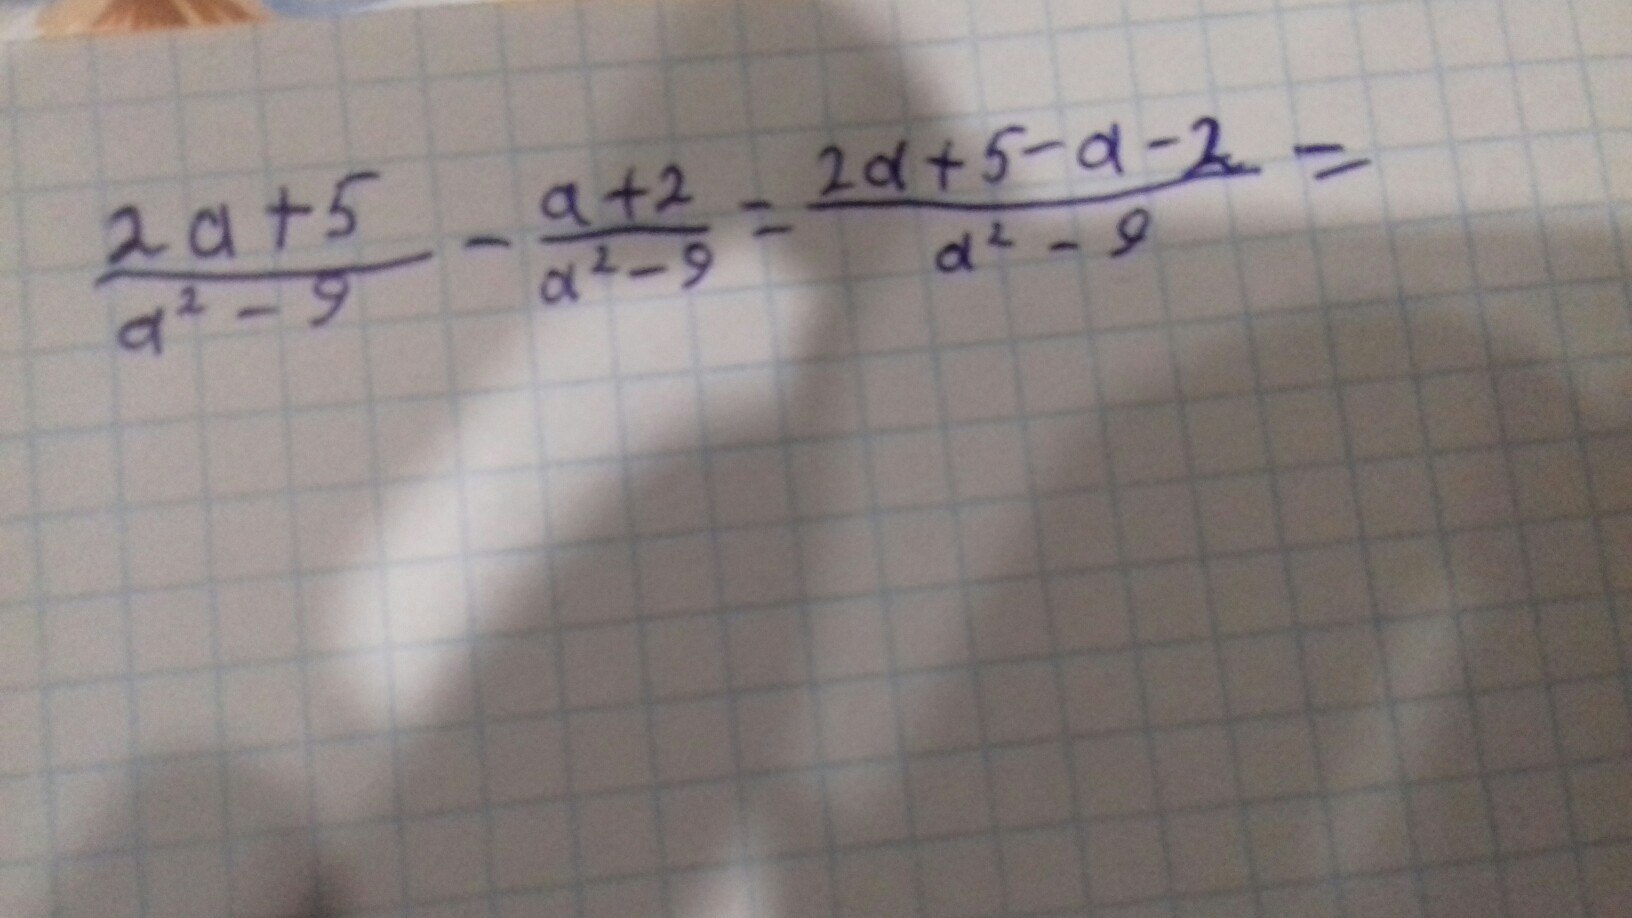 (2a+5)/(a²-9) - (a+2)/(a²-9) = (2a+5-a-2)/(a²-9) =